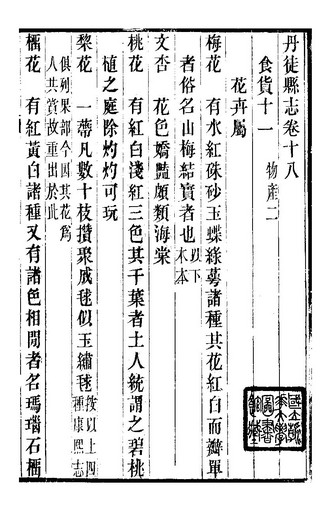 丹徒縣志卷十八
食貨十一 物產二
花卉屬
梅花 有水紅硃砂玉蝶綠萼諸種其花紅白而瓣單
者俗名山梅結實者也 以下
木本
文杏 花色嬌豔頗類海棠
桃花 有紅白淺紅三色其千葉者土人統謂之碧桃
植之庭除灼灼可玩
棃花 一蒂凡數十枝攢聚成毬似玉繡毬 按以上四
種康熙志
俱列果部今因其花爲
人共賞故重出於此
橊花 有紅黃白諸種又有諸色相閒者名瑪瑙石橊